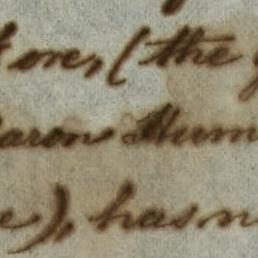 ore, (the
aron Hum
e), has n